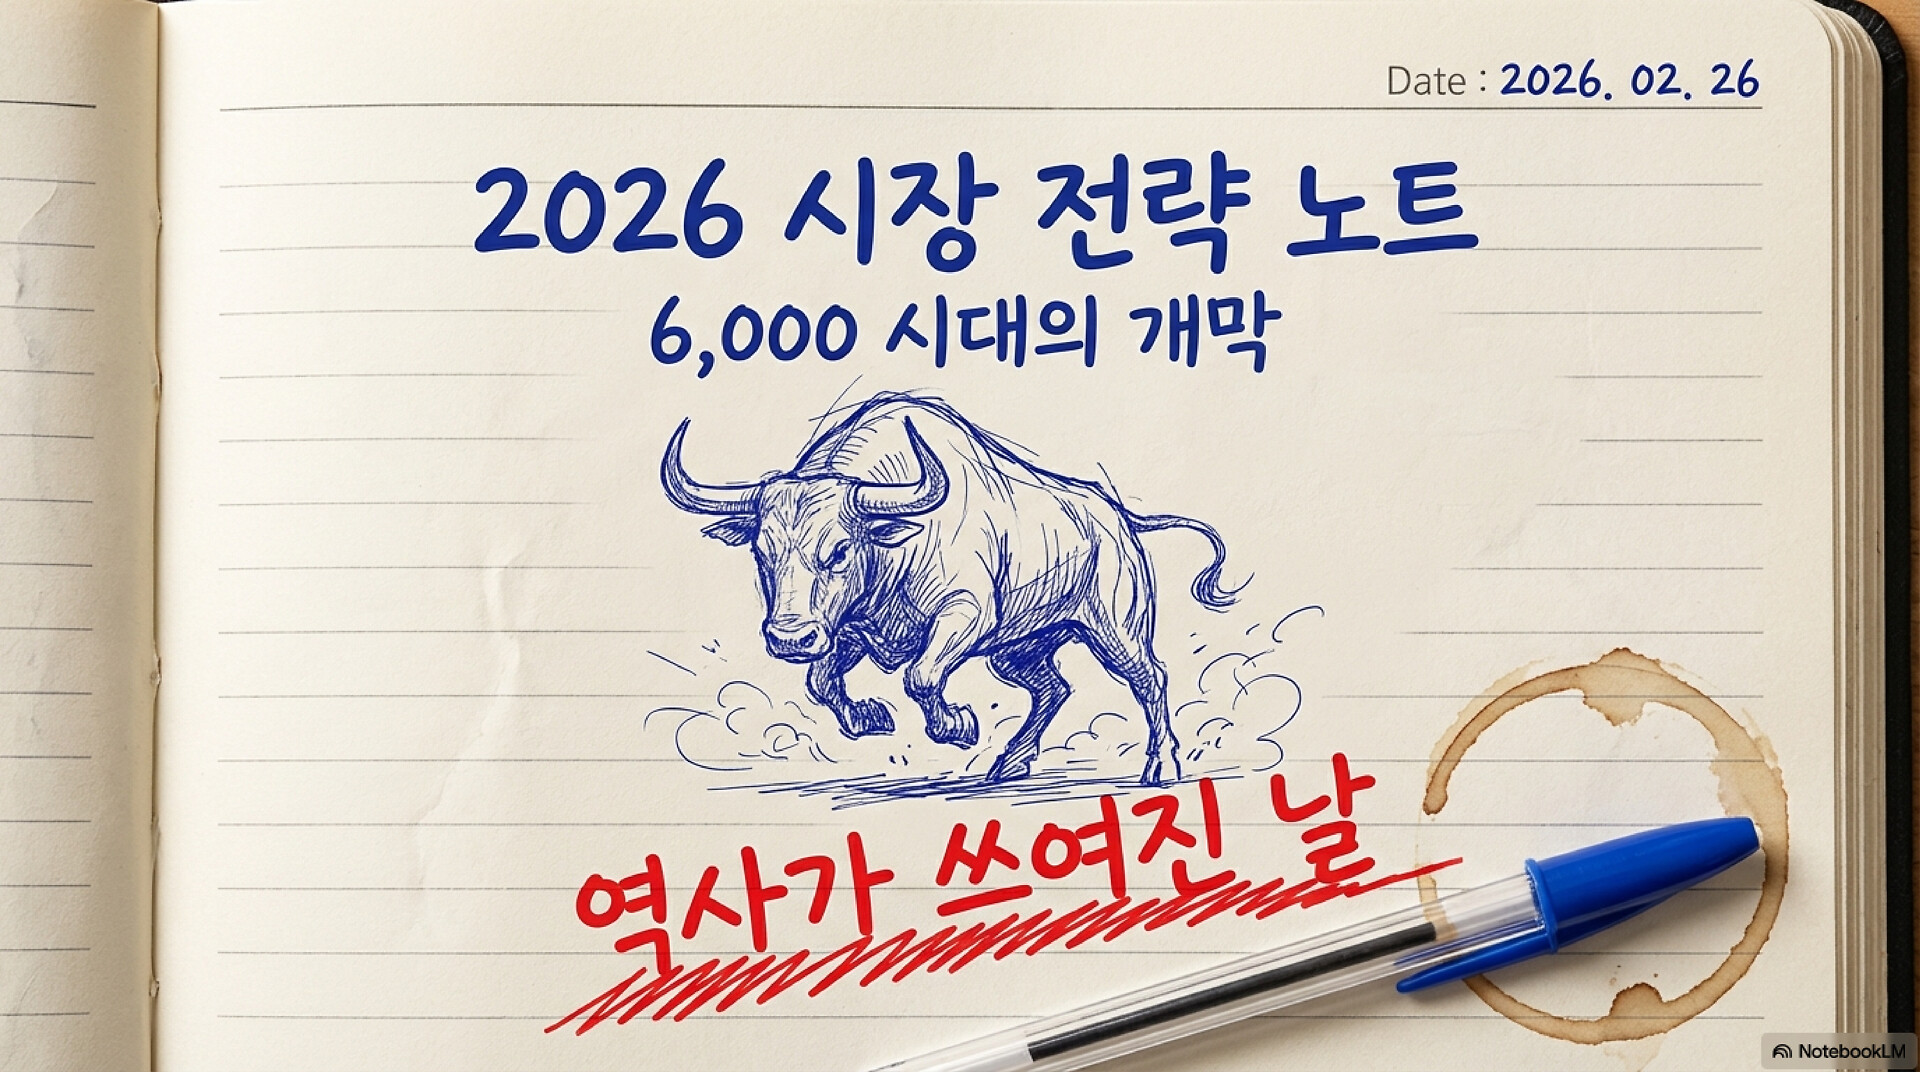 Date : 2026. 02. 26
2026 시장 전략 노트
6,000 시대의 개막
역사가 쓰여진 날
NotebookLM